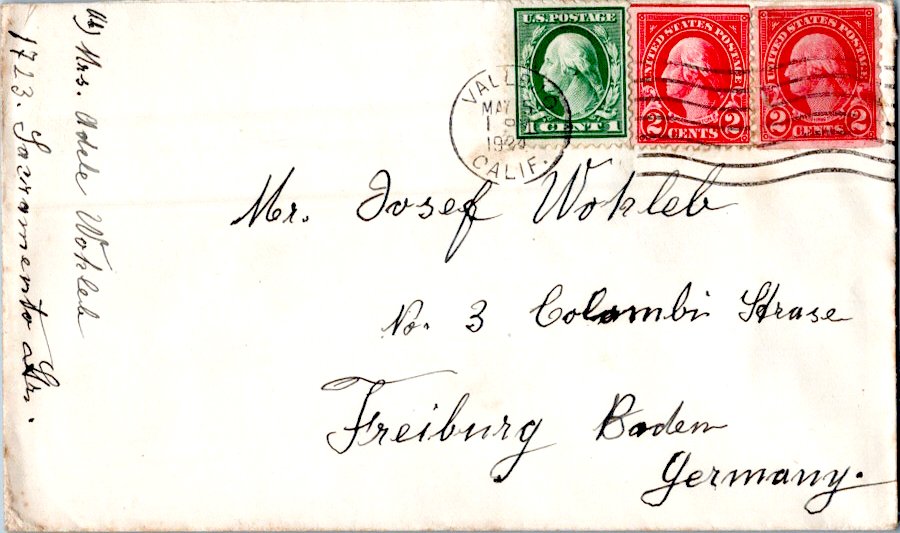 Mrs. Adele Wohleb
1723. Sacramento Str.
U.S. POSTAGE
1 CENT 1
UNITED STATES POSTAGE
2 CENTS 2
UNITED STATES POSTAGE
2 CENTS 2
VALLEJO
MAY 5
1 P
CALIF.
Mr. Josef Wohleb
No. 3 Colombi Strase
Freiburg Baden
Germany.